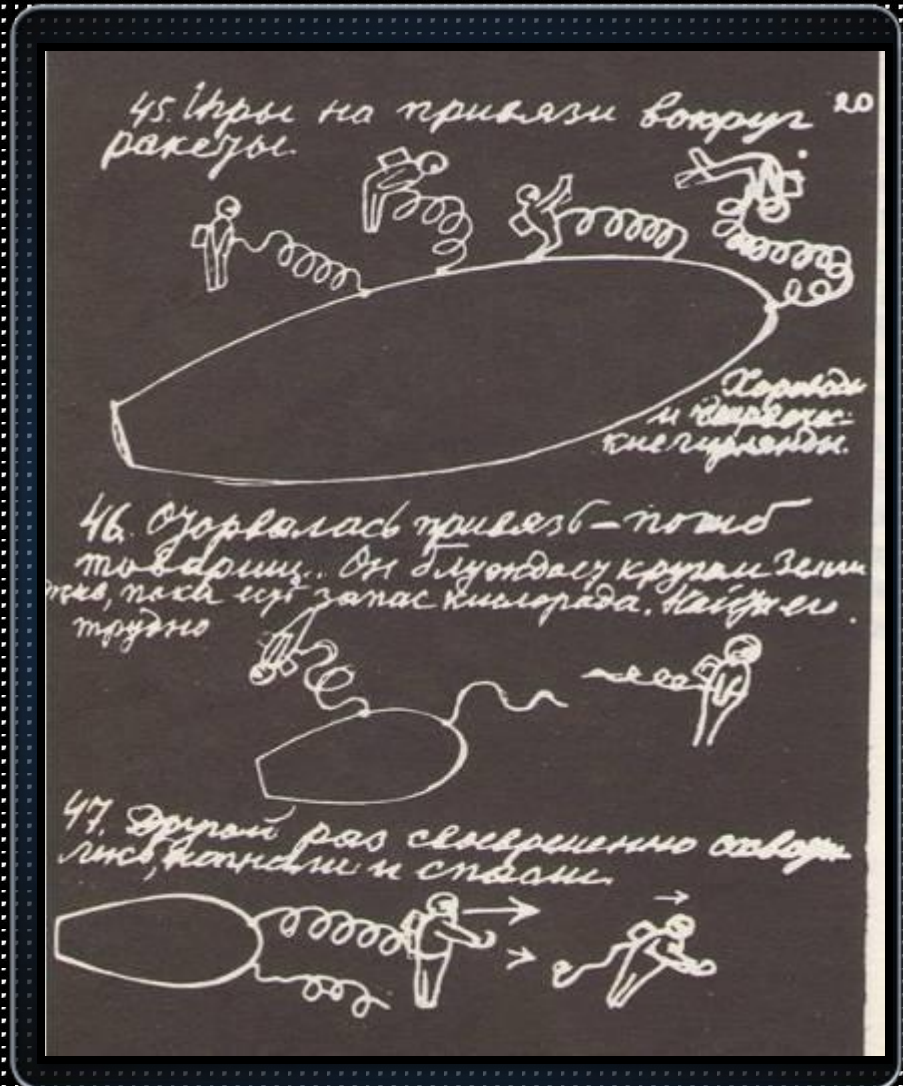 45. Игры на привязи вокруг 20
ракеты.
Хороводы
и человече-
ские гирлянды.
46. Оторвалась привязь – погиб
товарищ.. Он блуждает кругом Земли
жив, пока есть запас кислорода. Найти его
трудно
47. Другой раз своевременно схвати-
лись, нагнали и спасли.